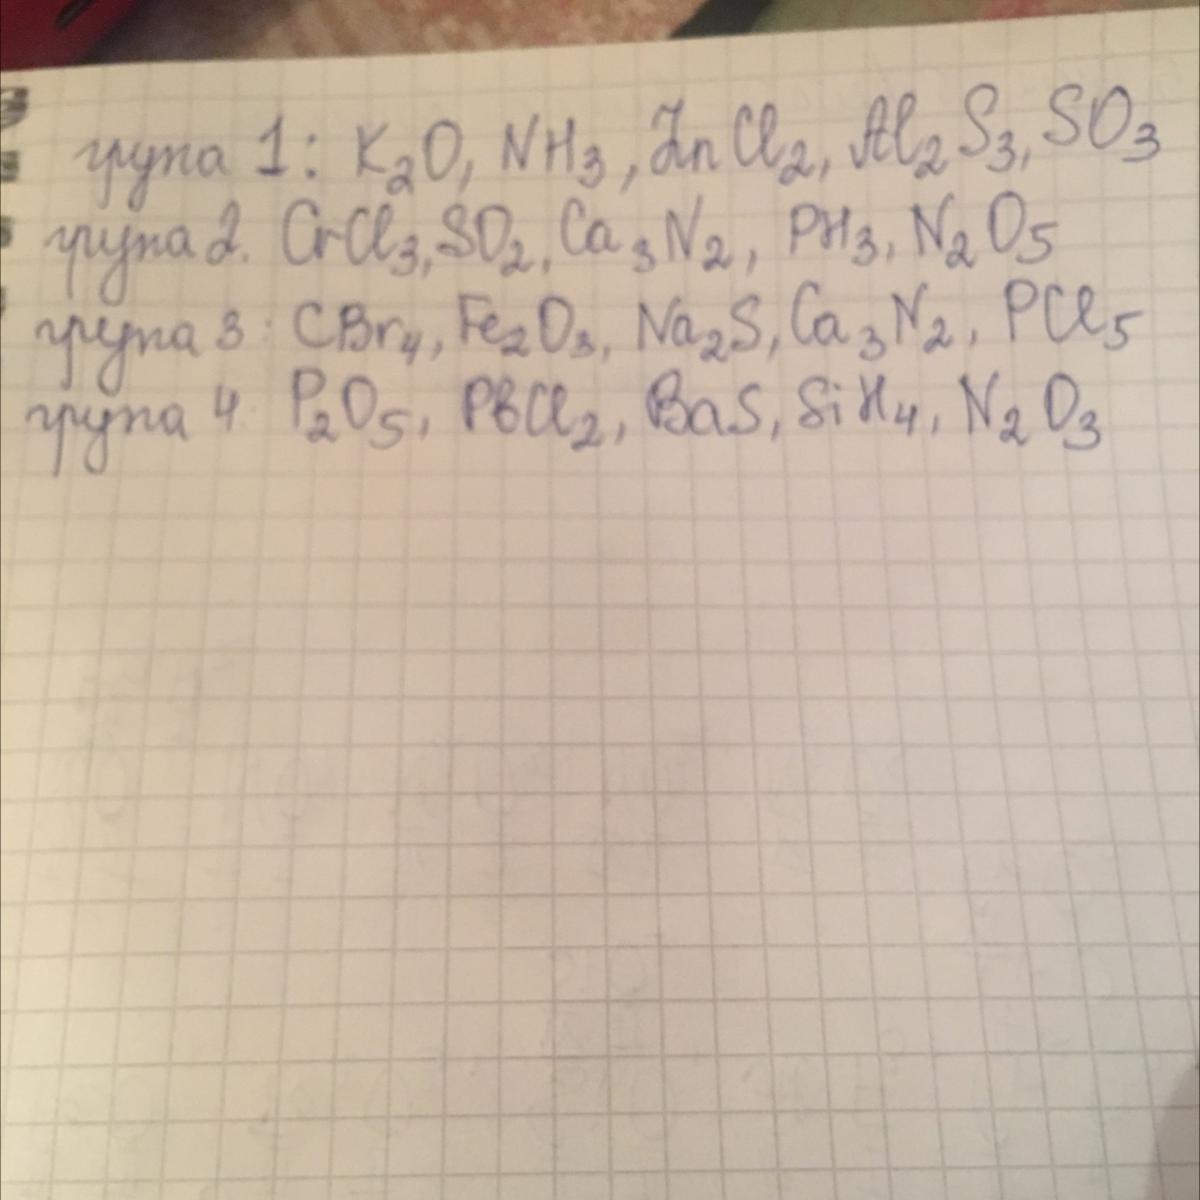 група 1: K₂O, NH₃, ZnCl₂, Al₂S₃, SO₃
група 2. CrCl₃, SO₂, Ca₃N₂, PH₃, N₂O₅
група 3: CBr₄, Fe₂O₃, Na₂S, Ca₃N₂, PCl₅
група 4. P₂O₅, PbCl₂, BaS, SiH₄, N₂O₃